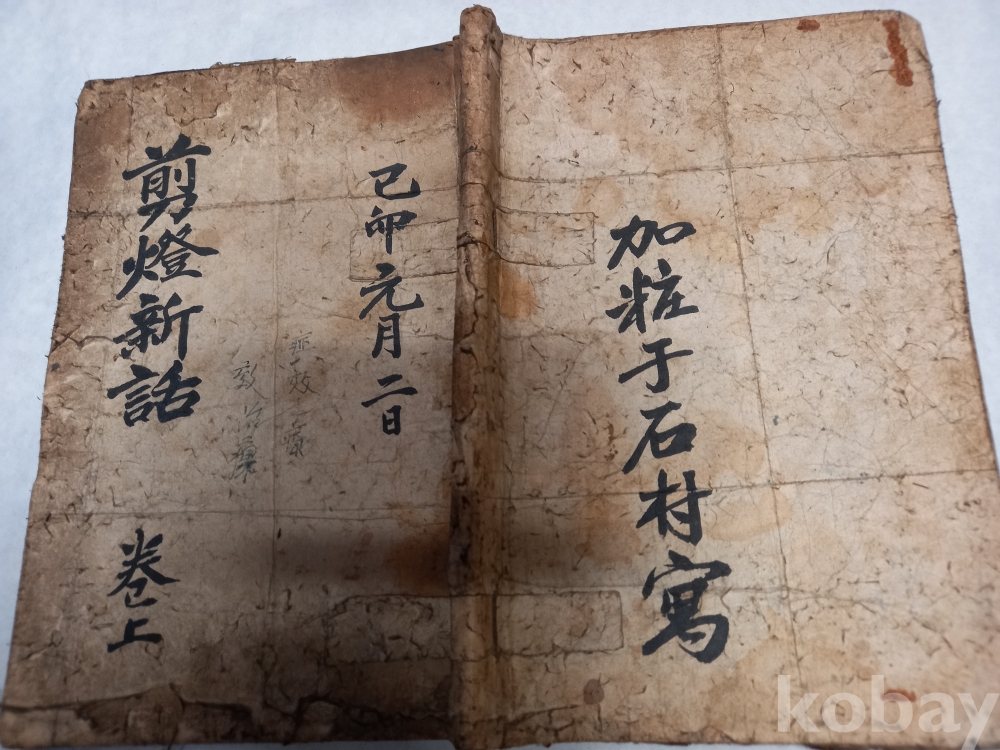 加粧于石村寓
己卯元月二日
剪燈新話 卷上
kobay